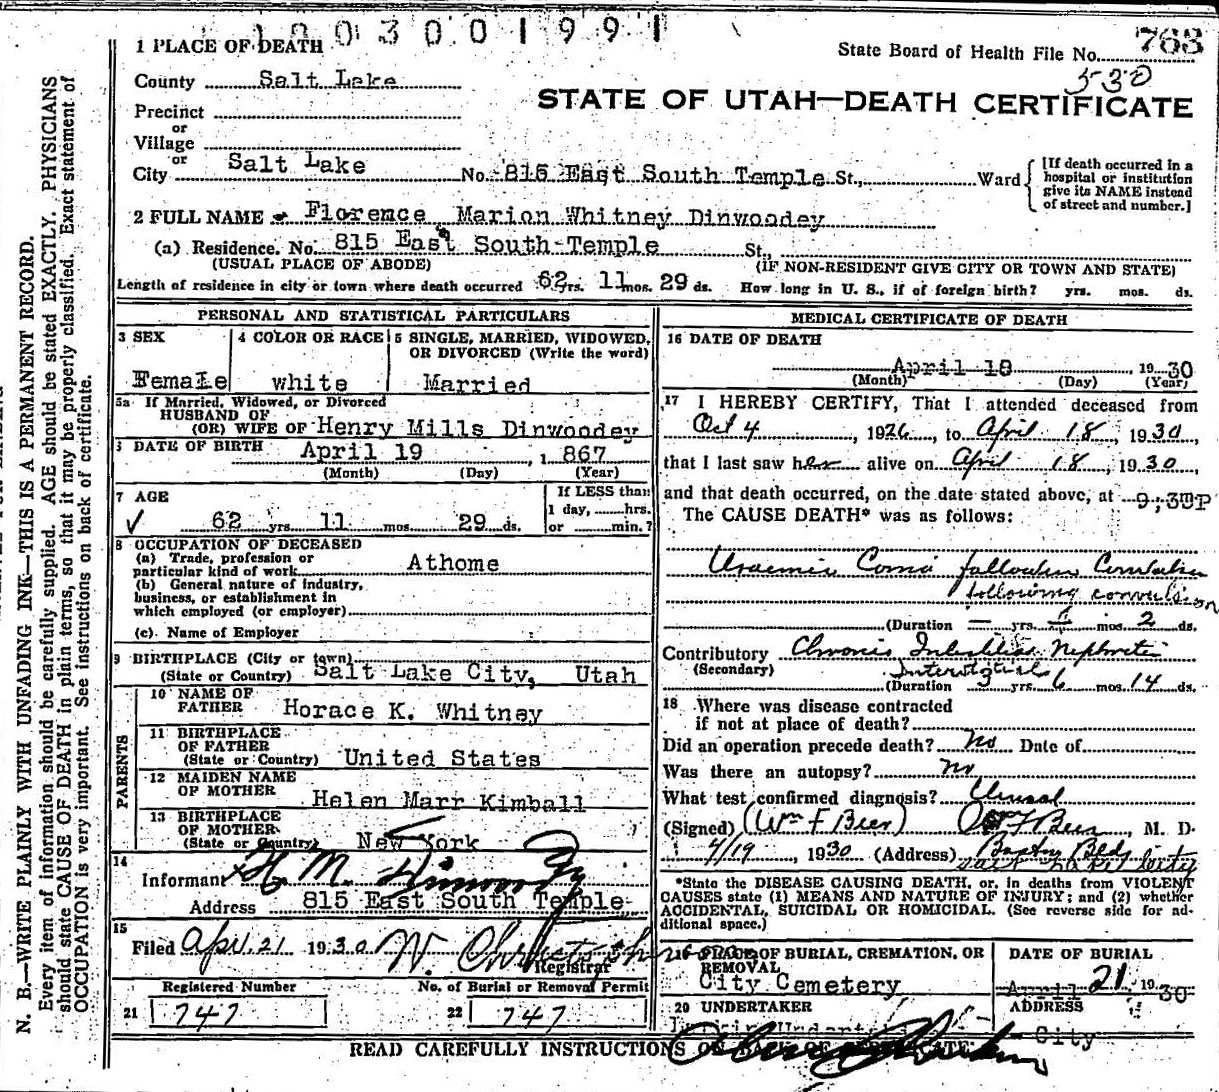 1003001991
1 PLACE OF DEATH
State Board of Health File No. 763
530
County Salt Lake
STATE OF UTAH—DEATH CERTIFICATE
Precinct
or
Village
or
City Salt Lake No. 815 East South Temple St., Ward
[If death occurred in a
hospital or institution
give its NAME instead
of street and number.]
2 FULL NAME Florence Marion Whitney Dinwoodey
(a) Residence. No. 815 East South Temple St.,
(USUAL PLACE OF ABODE) (IF NON-RESIDENT GIVE CITY OR TOWN AND STATE)
Length of residence in city or town where death occurred 62 yrs. 11 mos. 29 ds. How long in U. S., if of foreign birth? yrs. mos. ds.
PERSONAL AND STATISTICAL PARTICULARS
3 SEX
Female
4 COLOR OR RACE
white
5 SINGLE, MARRIED, WIDOWED,
OR DIVORCED (Write the word)
Married
5a If Married, Widowed, or Divorced
HUSBAND OF
(OR) WIFE OF Henry Mills Dinwoodey
6 DATE OF BIRTH April 19, 1867
(Month) (Day) (Year)
7 AGE
62 yrs. 11 mos. 29 ds.
If LESS than
1 day, hrs.
or min.?
8 OCCUPATION OF DECEASED
(a) Trade, profession or
particular kind of work Athome
(b) General nature of industry,
business, or establishment in
which employed (or employer)
(c) Name of Employer
9 BIRTHPLACE (City or town)
(State or Country) Salt Lake City, Utah
PARENTS
10 NAME OF
FATHER Horace K. Whitney
11 BIRTHPLACE
OF FATHER
(State or Country) United States
12 MAIDEN NAME
OF MOTHER Helen Marr Kimball
13 BIRTHPLACE
OF MOTHER
(State or Country) New York
14
Informant H. M. Dinwoodey
Address 815 East South Temple
15
Filed Apr. 21 1930 N. Christopherson
Registrar
Registered Number No. of Burial or Removal Permit
21 747 22 747
MEDICAL CERTIFICATE OF DEATH
16 DATE OF DEATH
April 18, 1930
(Month) (Day) (Year)
17 I HEREBY CERTIFY, That I attended deceased from
Oct 4, 1926, to April 18, 1930,
that I last saw her alive on April 18, 1930,
and that death occurred, on the date stated above, at 9;30P
The CAUSE DEATH* was as follows:
Uraemic Coma following Convulsion
following convulsion
(Duration — yrs. mos. 2 ds.
Contributory Chronic Interstitial Nephritis
(Secondary) Interstitial
(Duration 3 yrs. 6 mos. 14 ds.
18 Where was disease contracted
if not at place of death?
Did an operation precede death? No Date of
Was there an autopsy? No
What test confirmed diagnosis? Clinical
(Signed) (Wm F Beer) Wm F Beer, M. D.
4/19, 1930 (Address) Boston Bldg
Salt Lake City
*State the DISEASE CAUSING DEATH, or, in deaths from VIOLENT
CAUSES state (1) MEANS AND NATURE OF INJURY; and (2) whether
ACCIDENTAL, SUICIDAL OR HOMICIDAL. (See reverse side for ad-
ditional space.)
19 PLACE OF BURIAL, CREMATION, OR
REMOVAL
City Cemetery
DATE OF BURIAL
April 21, 1930
20 UNDERTAKER
ADDRESS
City
READ CAREFULLY INSTRUCTIONS ON BACK OF CERTIFICATE
N. B.—WRITE PLAINLY WITH UNFADING INK—THIS IS A PERMANENT RECORD.
Every item of information should be carefully supplied. AGE should be stated EXACTLY. PHYSICIANS
should state CAUSE OF DEATH in plain terms, so that it may be properly classified. Exact statement of
OCCUPATION is very important. See Instructions on back of certificate.